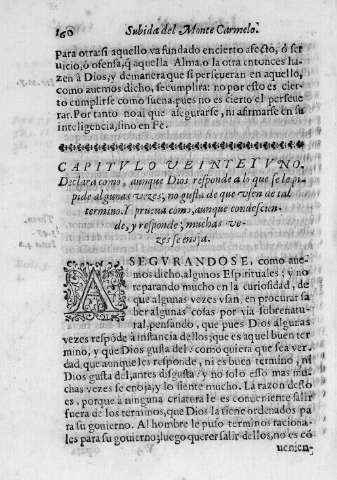 160 Subida del Monte Carmelo.
para otra: si aquello va fundado en cierto afecto, ó ser
uicio, ó ofensa, q̃ aquella Alma, o la otra entonces ha-
zen à Dios, y de manera que si perseueran en aquello,
como auemos dicho, se cumplira: no por esto es cier-
to cumplirse como suena, pues no es cierto el perseue
rar. Por tanto no ai que asegurarse, ni afirmarse en su
inteligencia, sino en Fè.
CAPITVLO VEINTE Y VNO.
Declara como, aunque Dios responde a lo que se le pi-
pide algunas vezes, no gusta de que vsen de tal
termino. Y prueua como, aunque condescien-
de, y responde, muchas ve-
zes se enoja.
ASEGVRANDOSE, como aue-
mos dicho, algunos Espirituales; y no
reparando mucho en la curiosidad, de
que algunas vezes vsan, en procurar sa
ber algunas cosas por via sobrenatu-
ral, pensando, que pues Dios algunas
vezes respõde à instancia dellos, que es aquel buen ter
mino, y que Dios gusta del: como quiera que sea ver-
dad, que aunque les responde, ni es buen termino, ni
Dios gusta del, antes disgusta: y no solo esto mas mu-
chas vezes se enoja, y lo siente mucho. La razon desto
es, porque à ninguna criatura le es conueniente salir
fuera de los terminos, que Dios la tiene ordenados pa
ra su gouierno. Al hombre le puso terminos raciona-
les para su gouierno; luego querer salir dellos, no es cõ
uenien-